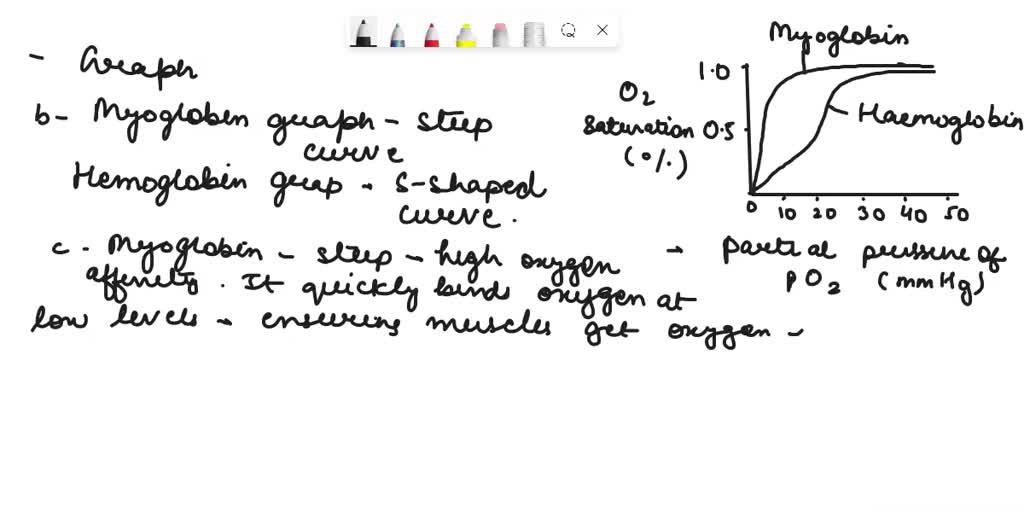 - Graph
b- Myoglobin graph - steep
curve
Hemoglobin grap - S-shaped
curve.
c. Myoglobin - steep - high oxygen
affinity. It quickly binds oxygen at
low levels - ensuring muscles get oxygen -
Myoglobin
1.0
O2
saturation 0.5
(%)
Haemoglobin
0 10 20 30 40 50
- Partial pressure of
pO2 (mmHg)